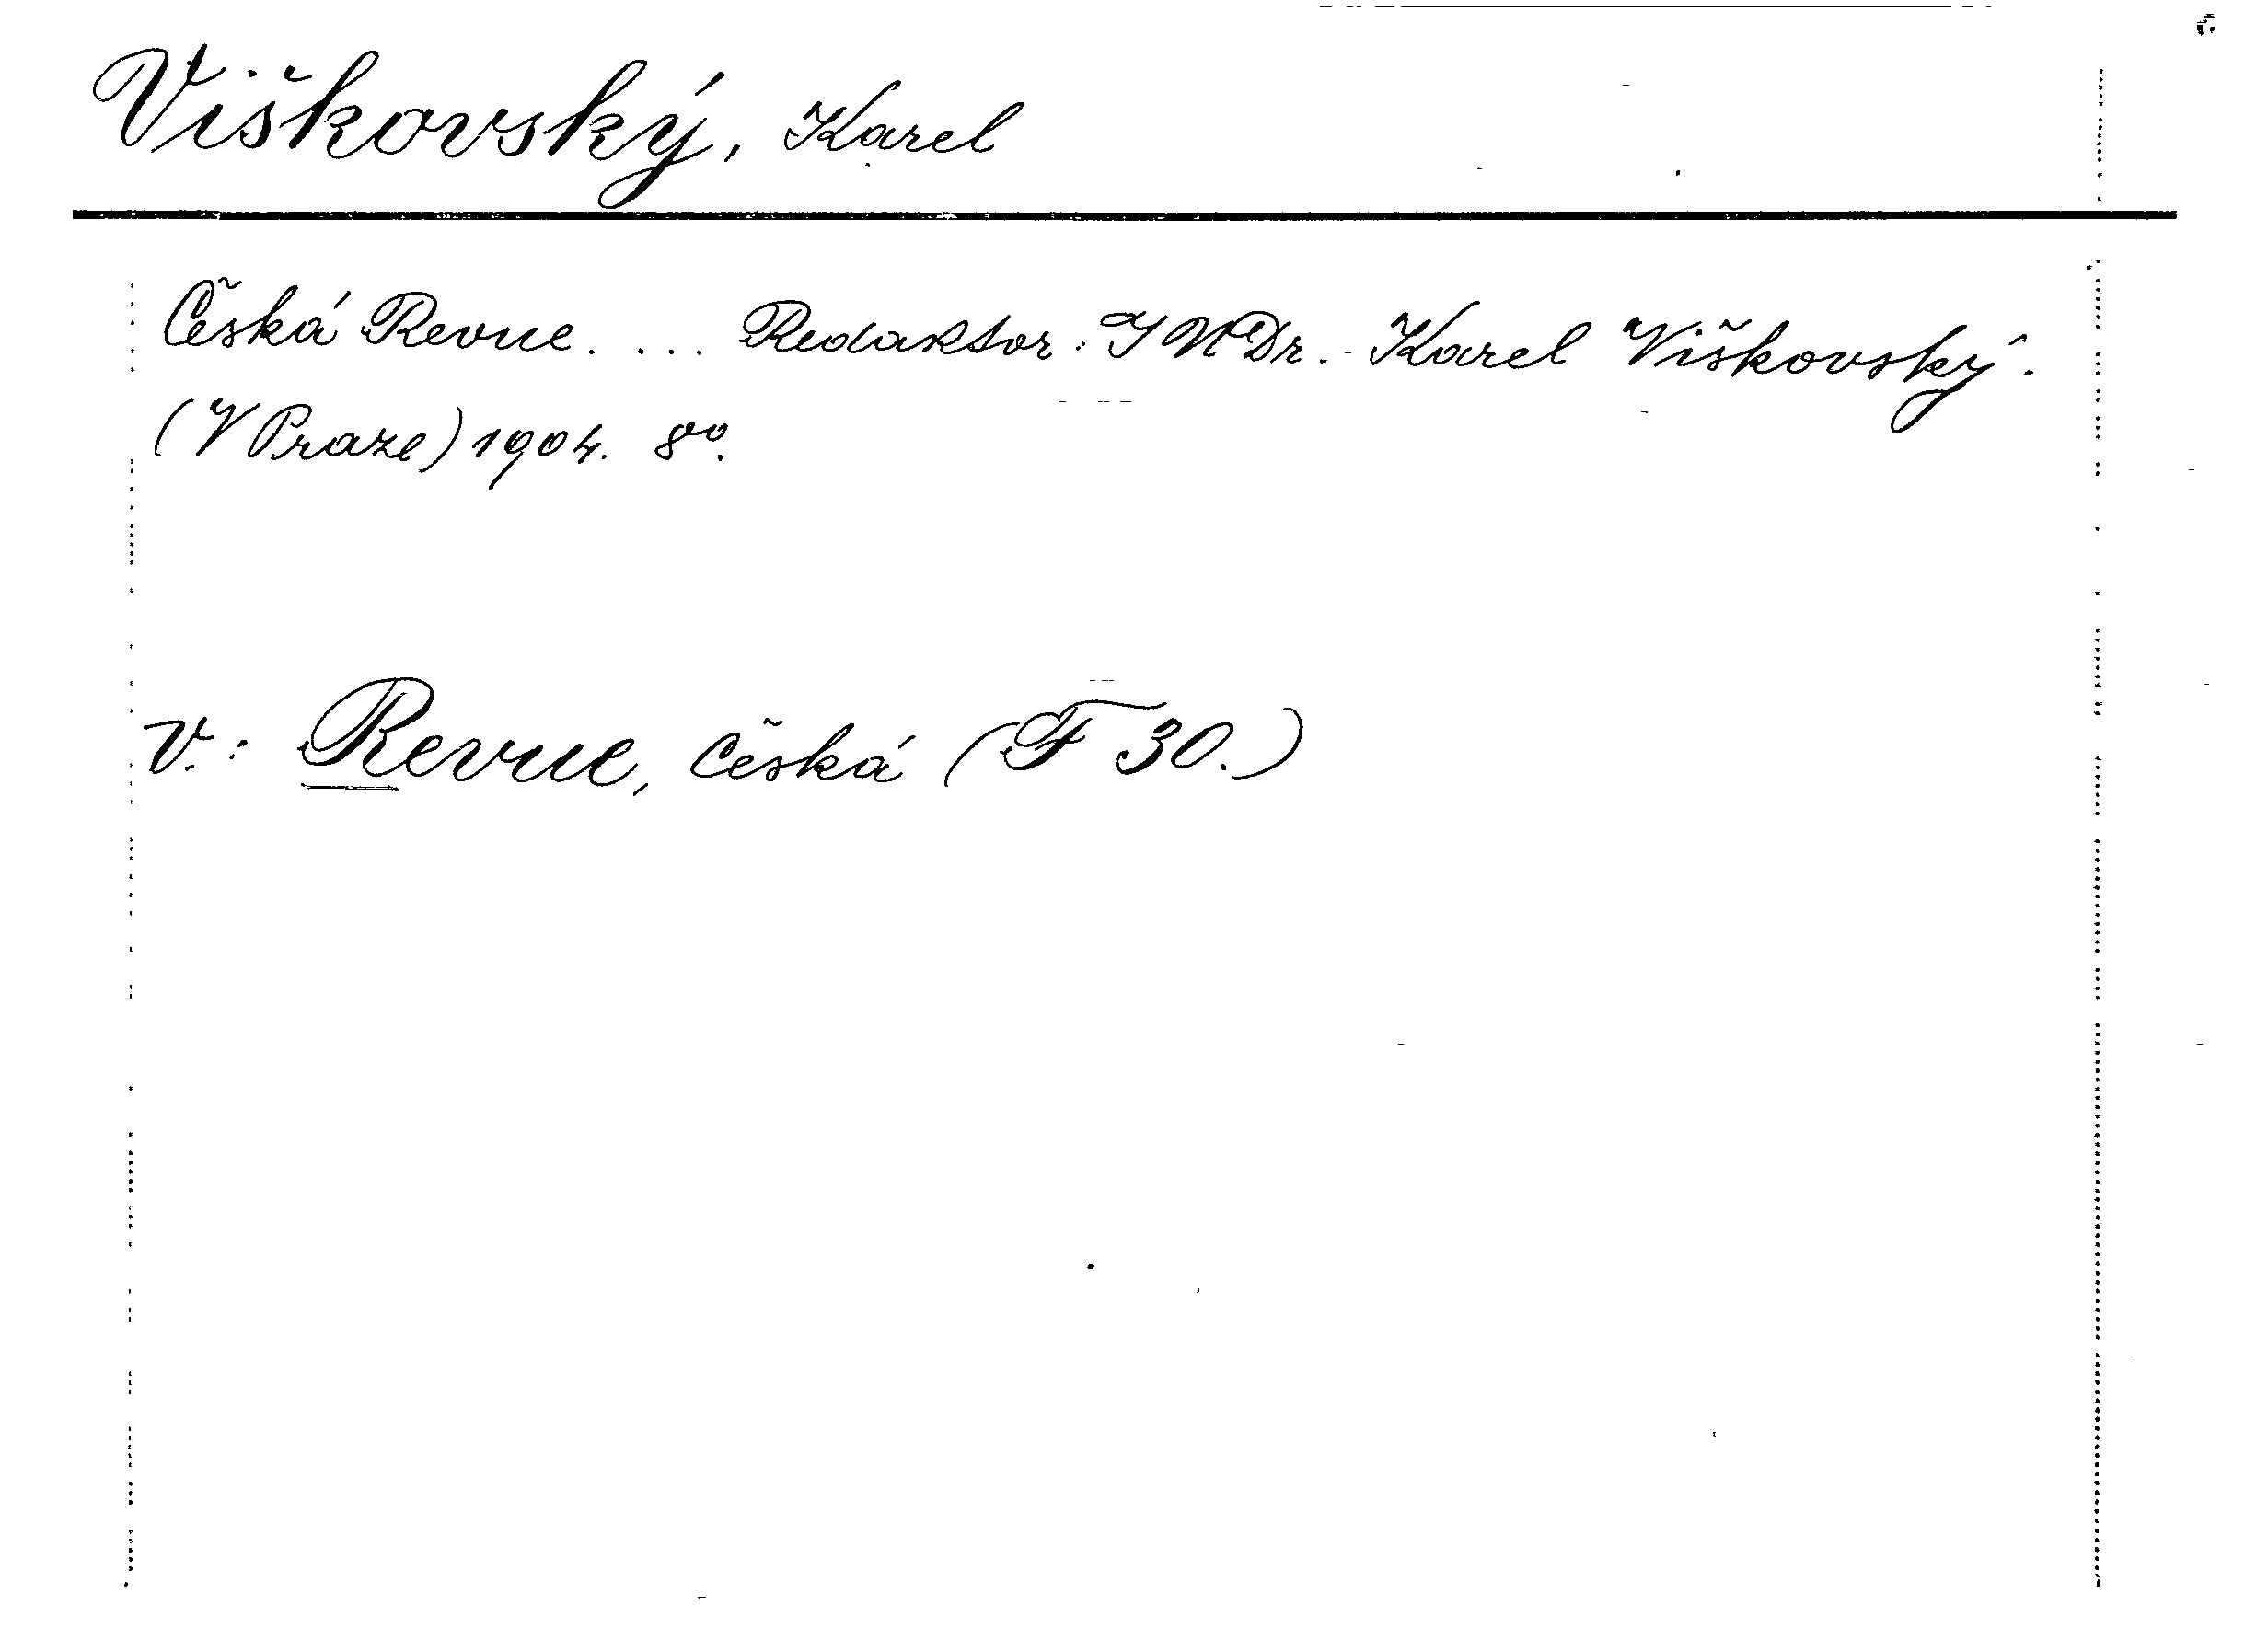 Viškovský, Karel
Česká Revue. ... Redaktor: JUDr. Karel Viškovský.
(V Praze) 1904. 8º.
V.: Revue, Česká (F 30.)